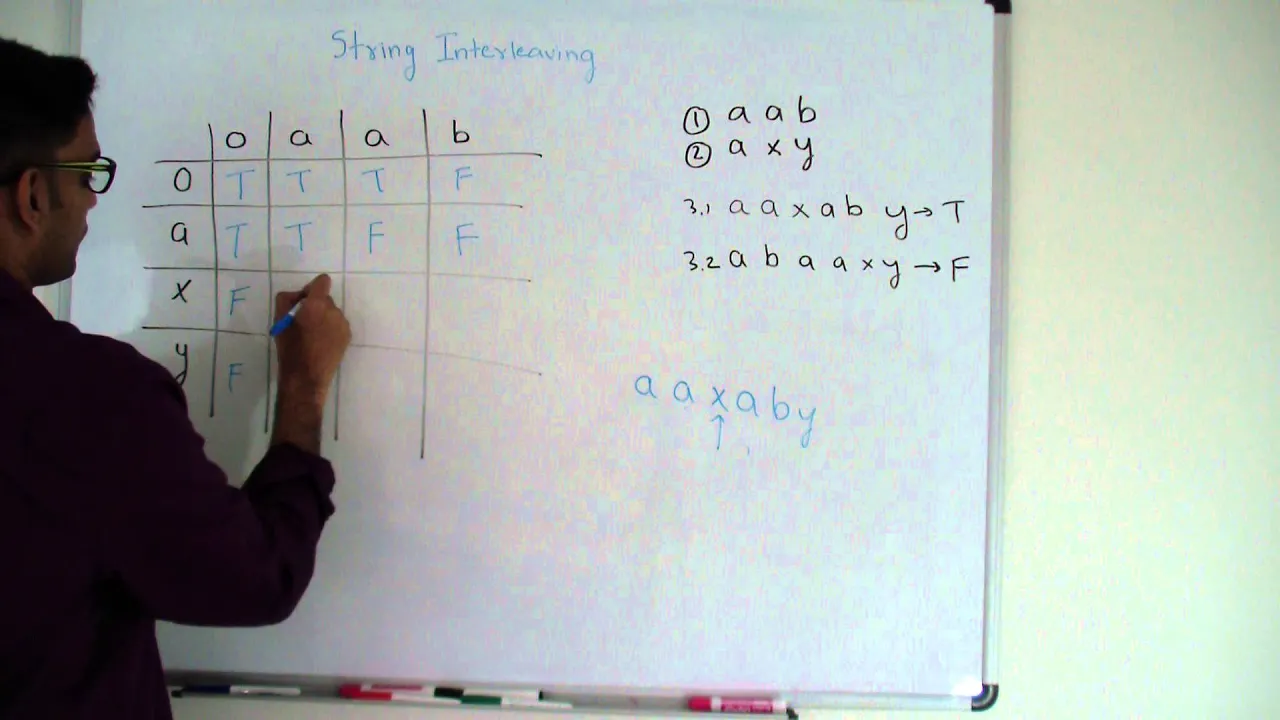 String Interleaving
0 a a b
0 T T T F
a T T F F
x F
y F
① a a b
② a x y
3.1 a a x a b y → T
3.2 a b a a x y → F
a a x a b y
↑